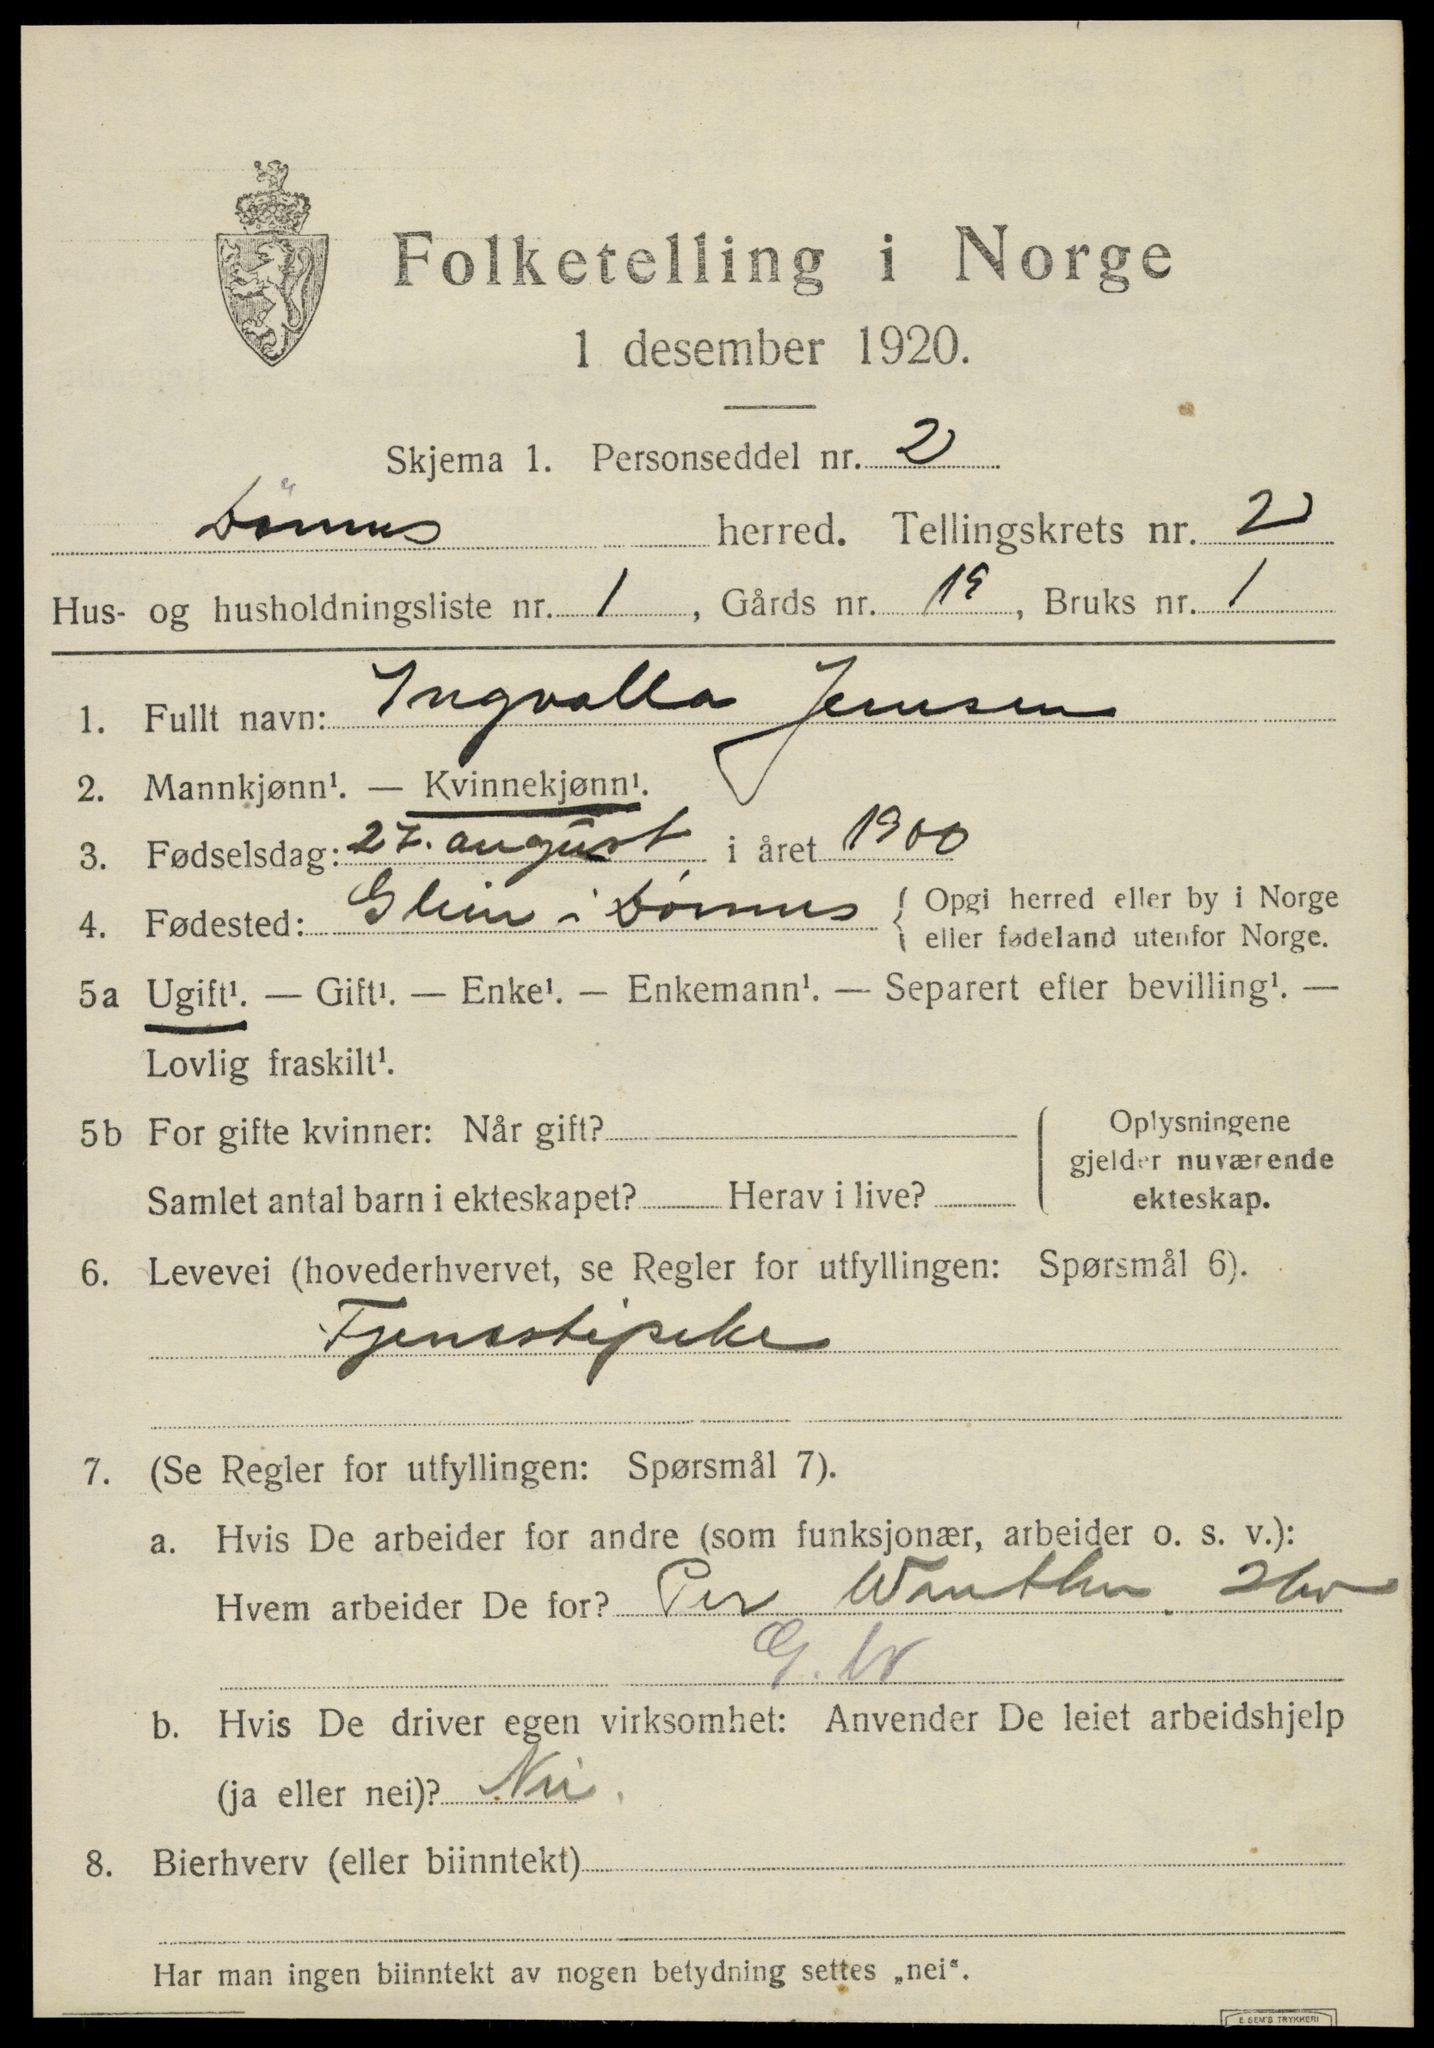 Folketelling i Norge
1 desember 1920.
Skjema 1. Personseddel nr. 2
Dönnes herred. Tellingskrets nr. 2
Hus- og husholdningsliste nr. 1, Gårds nr. 19, Bruks nr. 1
1. Fullt navn: Ingvalla Jensen
2. Mannkjønn¹. — Kvinnekjønn¹.
3. Fødselsdag: 27. august i året 1900
4. Fødested: Glein i Dönnes { Opgi herred eller by i Norge
eller fødeland utenfor Norge.
5a Ugift¹. — Gift¹. — Enke¹. — Enkemann¹. — Separert efter bevilling¹. —
Lovlig fraskilt¹.
5b For gifte kvinner: Når gift? Oplysningene
gjelder nuværende
Samlet antal barn i ekteskapet? Herav i live? ekteskap.
6. Levevei (hovederhvervet, se Regler for utfyllingen: Spørsmål 6).
Tjenestepike
7. (Se Regler for utfyllingen: Spørsmål 7).
a. Hvis De arbeider for andre (som funksjonær, arbeider o. s. v.):
Hvem arbeider De for? Per
G. W
b. Hvis De driver egen virksomhet: Anvender De leiet arbeidshjelp
(ja eller nei)? Nei.
8. Bierhverv (eller biinntekt)
Har man ingen biinntekt av nogen betydning settes „nei“.
E. SEM'S TRYKKERI